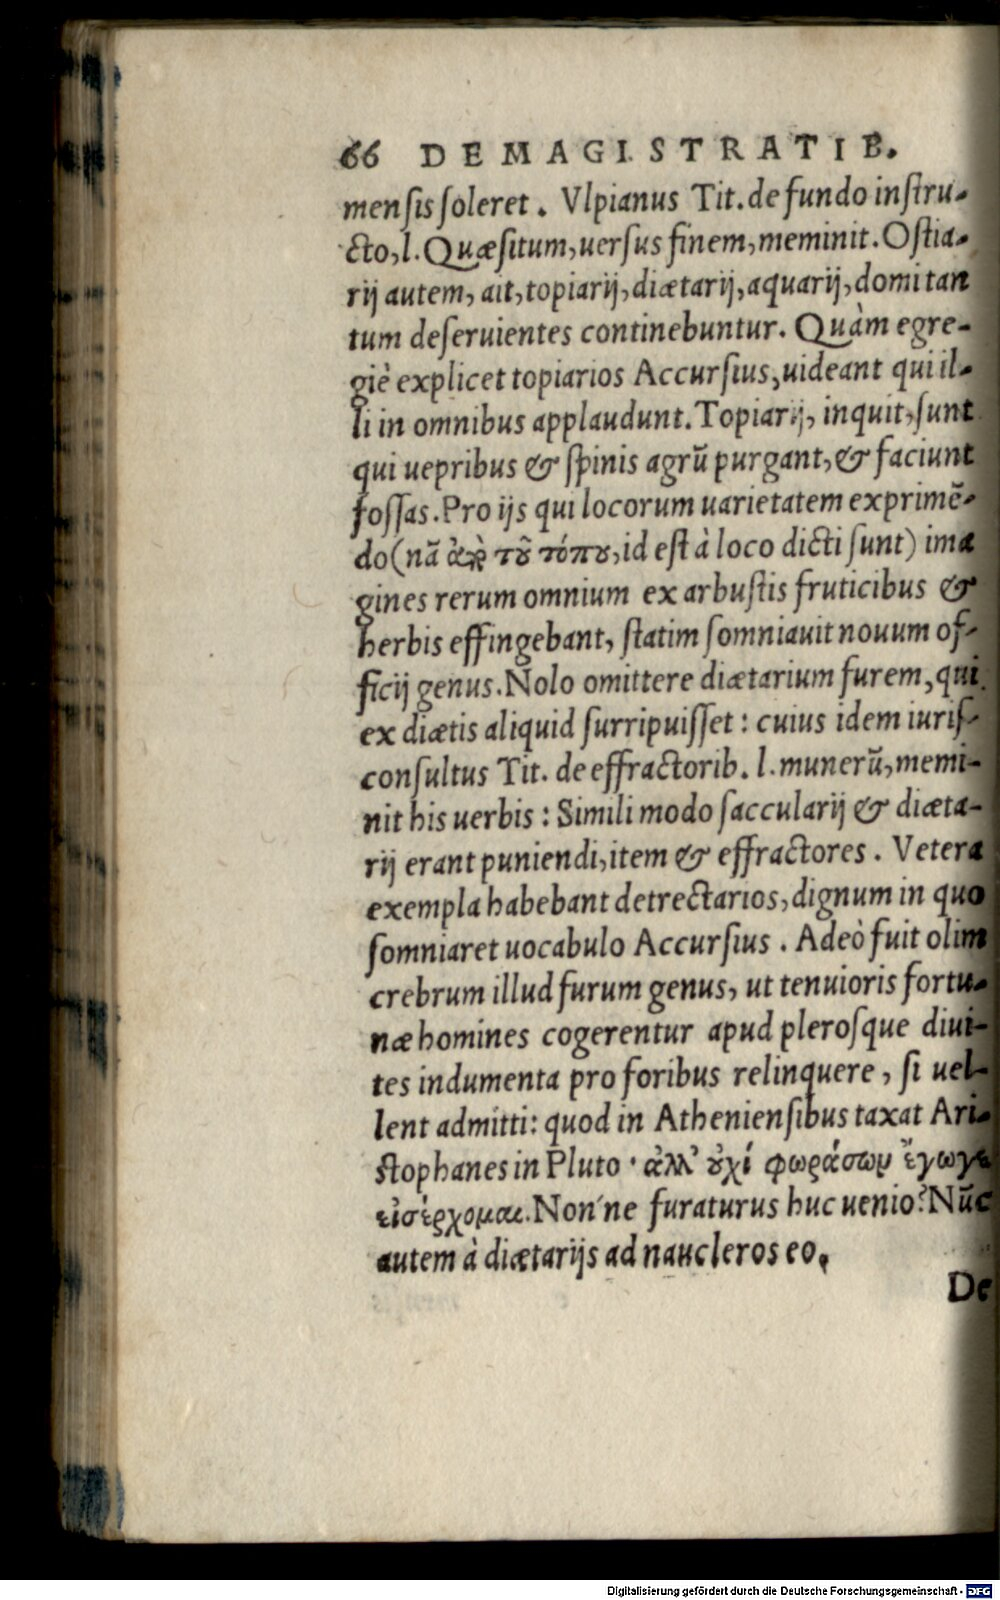 66 DE MAGISTRATIB.
menſis ſoleret. Vlpianus Tit. de fundo inſtru-
cto, l. Quæſitum, uerſus finem, meminit. Oſtia-
rij autem, ait, topiarij, diætarij, aquarij, domi tan
tum deſeruientes continebuntur. Quàm egre-
giè explicet topiarios Accurſius, uideant qui il-
li in omnibus applaudunt. Topiarij, inquit, ſunt
qui uepribus & ſpinis agrū purgant, & faciunt
foſſas. Pro ijs qui locorum uarietatem exprimē-
do (nā ἀπὸ τοῦ τόπου, id eſt à loco dicti ſunt) ima
gines rerum omnium ex arbuſtis fruticibus &
herbis effingebant, ſtatim ſomniauit nouum of-
ficij genus. Nolo omittere diætarium furem, qui
ex diætis aliquid ſurripuiſſet: cuius idem iuriſ-
conſultus Tit. de effractorib. l. munerū, memi-
nit his uerbis: Simili modo ſaccularij & diæta-
rij erant puniendi, item & effractores. Vetera
exempla habebant detrectarios, dignum in quo
ſomniaret uocabulo Accurſius. Adeò fuit olim
crebrum illud furum genus, ut tenuioris fortu-
næ homines cogerentur apud pleroſque diui-
tes indumenta pro foribus relinquere, ſi uel-
lent admitti: quod in Athenienſibus taxat Ari-
ſtophanes in Pluto· ἀλλ’ οὐχί φωράσων ἔγωγε
εἰσέρχομαι. Non´ne furaturus huc uenio? Nūc
autem à diætarijs ad naucleros eo.
De
Digitalisierung gefördert durch die Deutsche Forschungsgemeinschaft - DFG